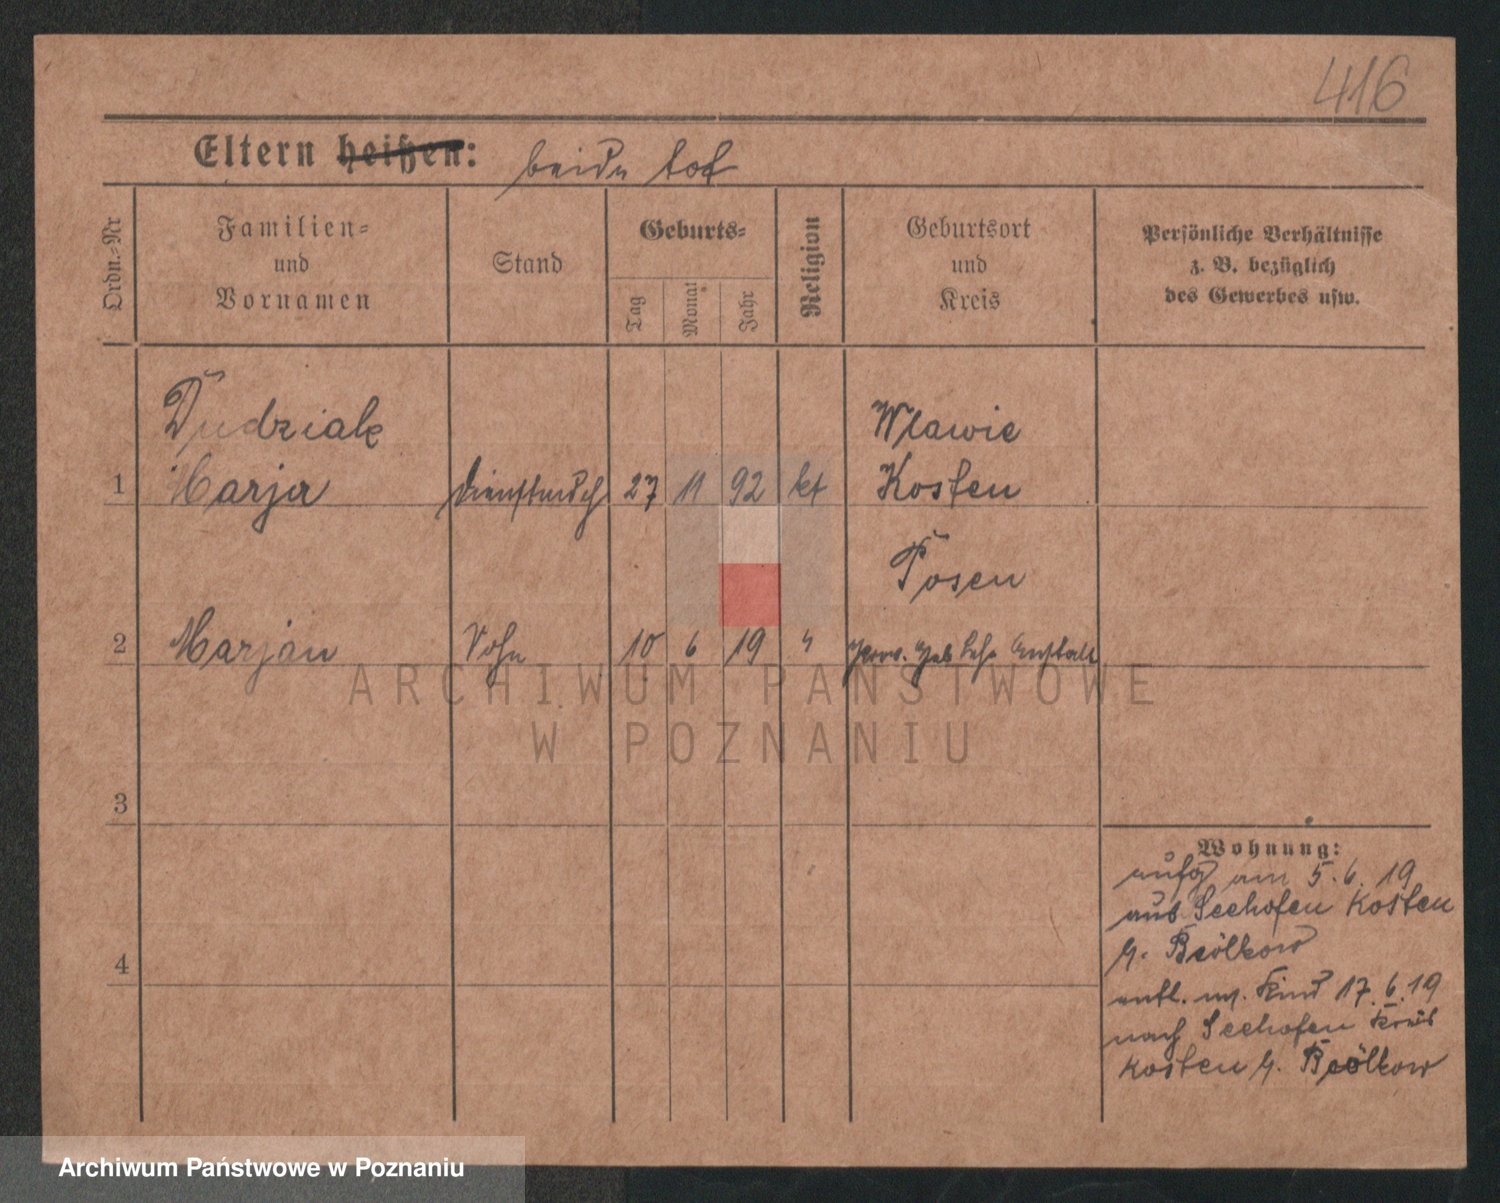 416
Eltern heißen: beide tot
Ordn.-Nr
Familien-
und
Vornamen
Stand
Geburts-
Tag
Monat
Jahr
Religion
Geburtsort
und
Kreis
Persönliche Verhältnisse
z. B. bezüglich
des Gewerbes usw.
Dudziak
Wlawie
1 Marja Dienstmdch 27 11 92 kt Kosten
Posen
2 Marjan Sohn 10 6 19 " Prov. Heb Lehr Anstalt
3
4
Wohnung:
aufg am 5.6.19
aus Seehofen Kosten
entl. m. Kind 17.6.19
nach Seehofen Kreis
Kosten
ARCHIWUM PAŃSTWOWE
W POZNANIU
Archiwum Państwowe w Poznaniu